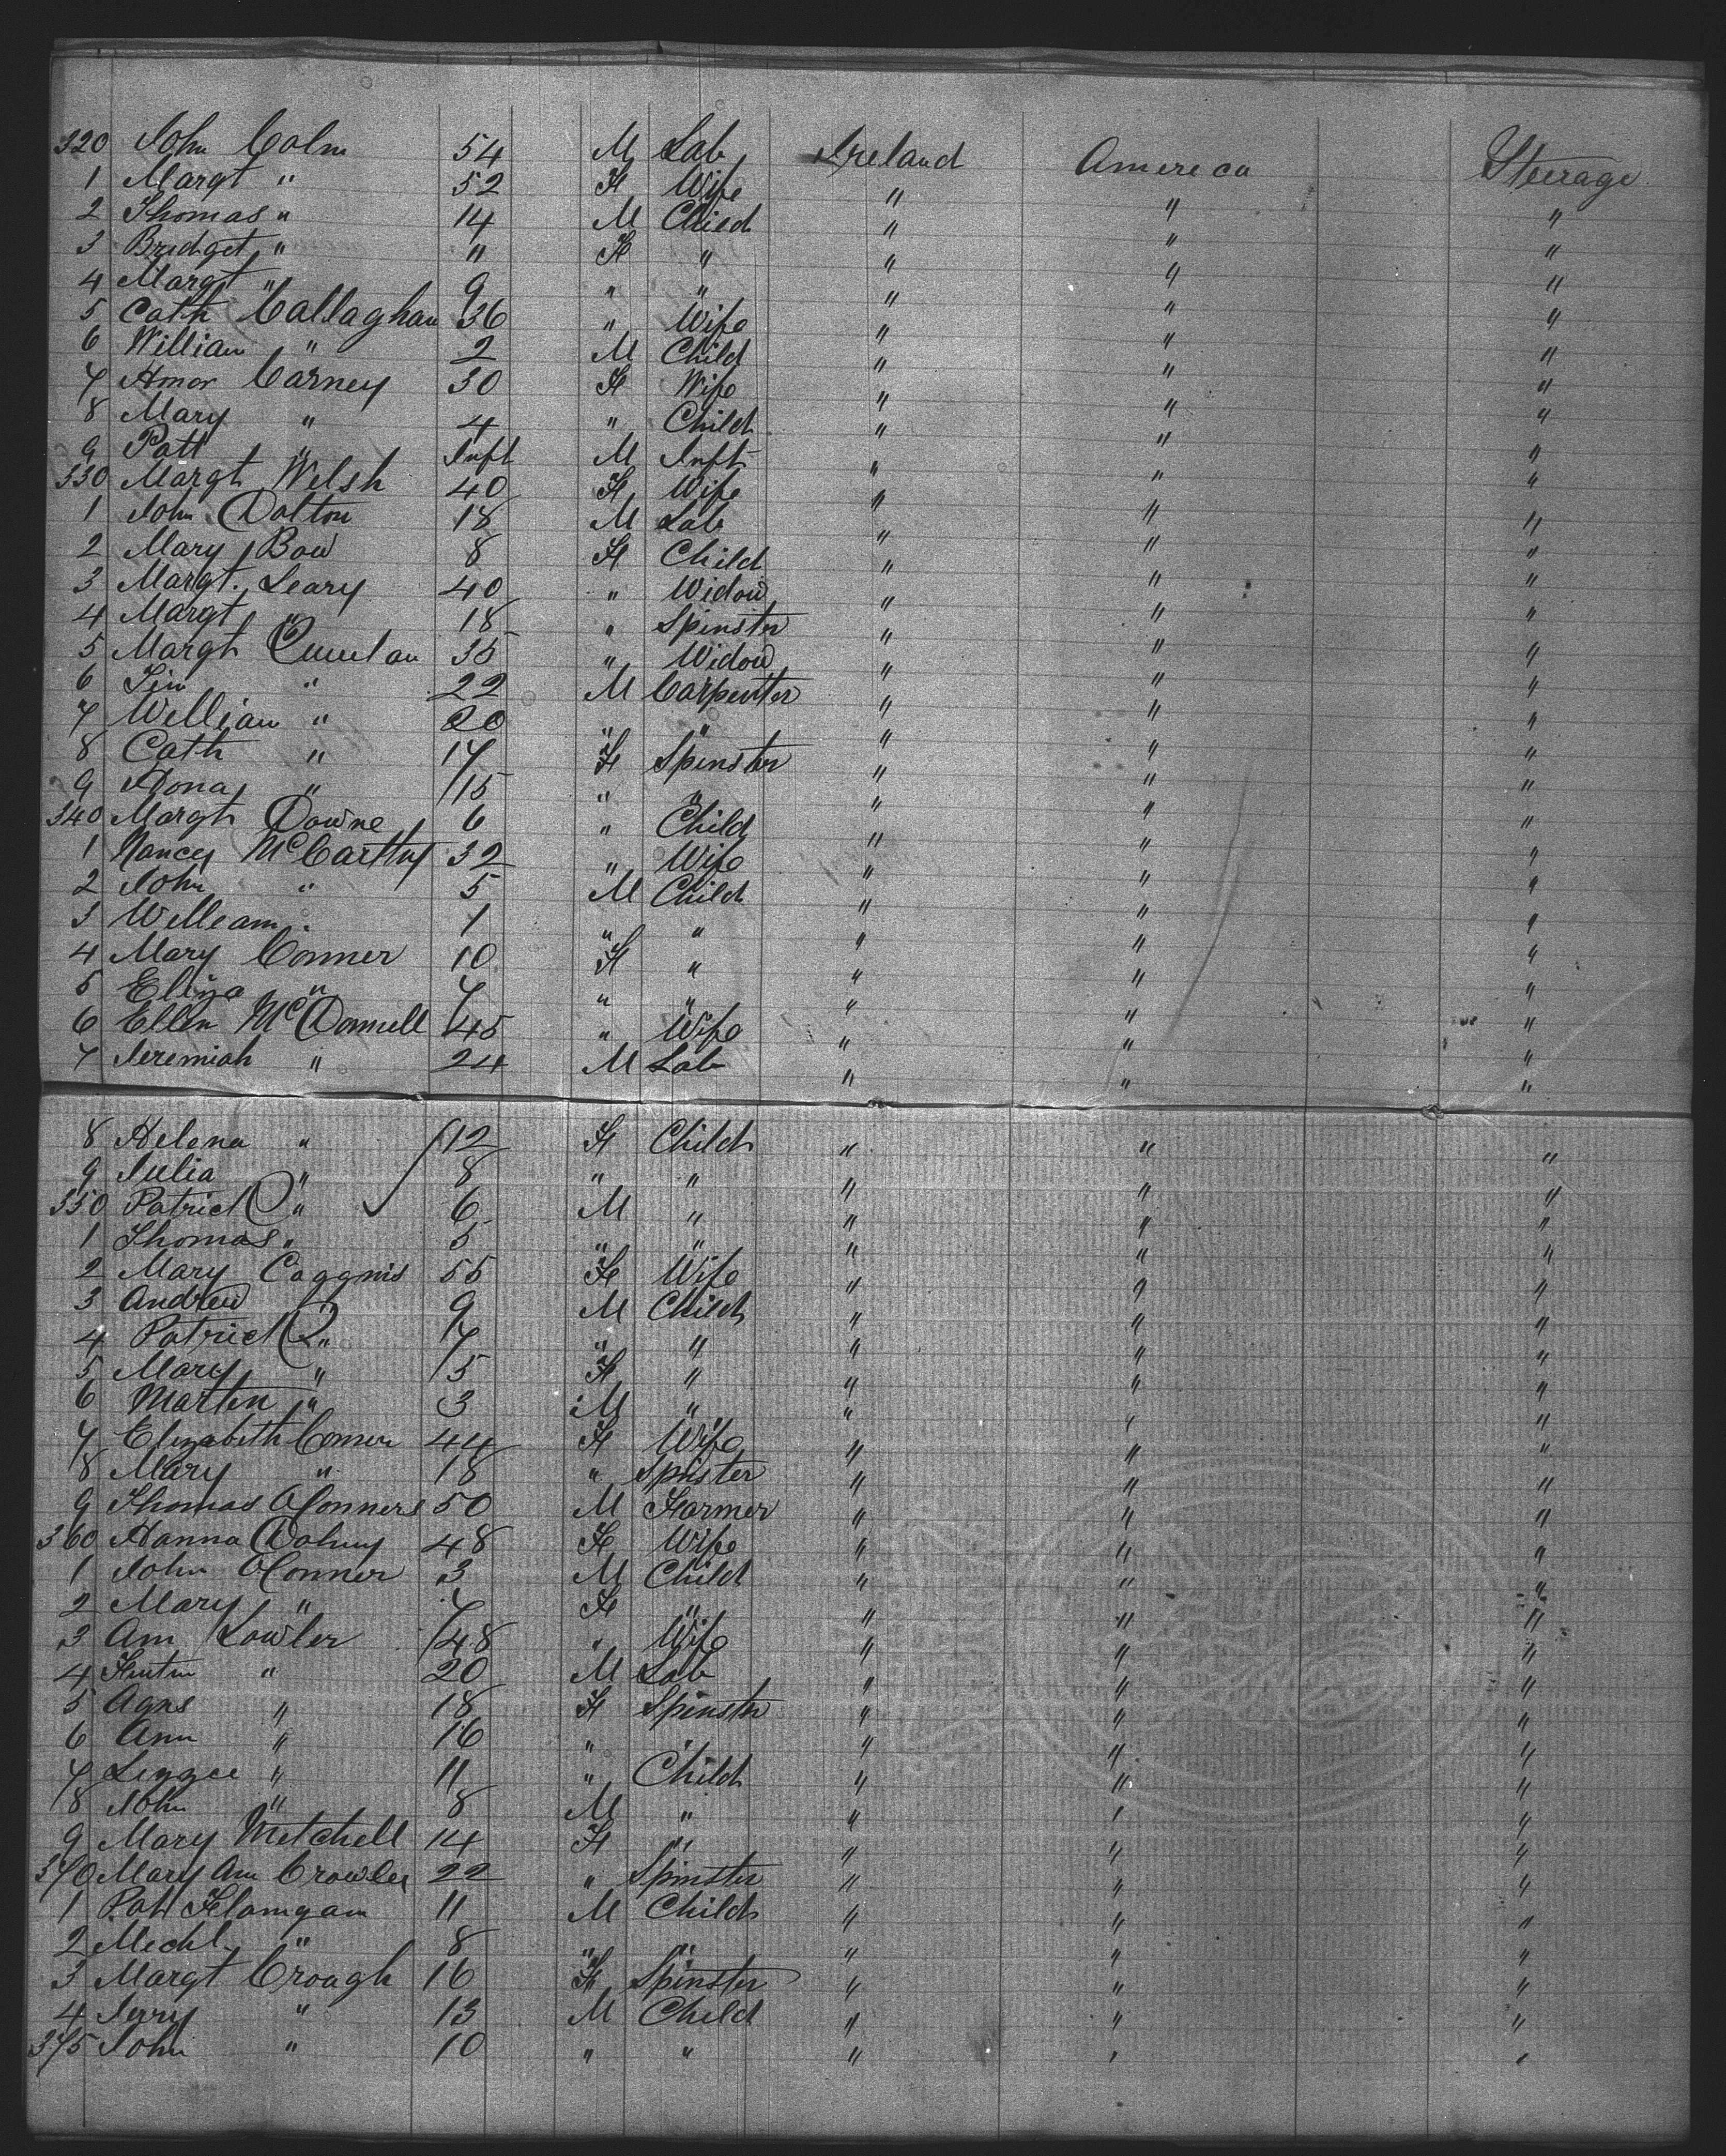 320 John Colm 54 M Lab Ireland Amereca Steerage
1 Margt " 52 F Wife " " "
2 Thomas " 14 M Child " " "
3 Bridget " " F " " " "
4 Margt " 9 " " " " "
5 Cath Callaghan 36 " Wife " " "
6 William " 2 M Child " " "
7 Honor Carney 30 F Wife " " "
8 Mary " 4 " Child " " "
9 Patt " Inft M Inft " " "
330 Margt Welsh 40 F Wife " " "
1 John Dalton 18 M Lab " " "
2 Mary Bow 8 F Child " " "
3 Margt. Leary 40 " Widow " " "
4 Margt " 18 " Spinster " " "
5 Margt Quinlan 35 " Widow " " "
6 " 22 M Carpenter " " "
7 William " 20 " " " " "
8 Cath " 17 F Spinster " " "
9 Hona " 15 " " " " "
340 Margt Downe 6 " Child " " "
1 Nancy McCarthy 32 " Wife " " "
2 John " 5 M Child " " "
3 William " 1 " " " " "
4 Mary Conner 10 F " " " "
5 Eliza " 7 " " " " "
6 Ellen McDonnell 45 " Wife " " "
7 Jeremiah " 24 M Lab " " "
8 Helena " 12 F Child " " "
9 Julia " 8 " " " " "
350 Patrick " 6 M " " " "
1 Thomas " 5 " " " " "
2 Mary Coggnis 55 F Wife " " "
3 Andrew " 9 M Child " " "
4 Patrick " 7 " " " " "
5 Mary " 5 F " " " "
6 Marten " 3 M " " " "
7 Elizabeth Conner 44 F Wife " " "
8 Mary " 18 " Spister " " "
9 Thomas OConners 50 M Farmer " " "
360 Hanna Dohny 48 F Wife " " "
1 John OConner 3 M Child " " "
2 Mary " 7 F " " " "
3 Ann Lawler 48 " Wife " " "
4 " 20 M Lab " " "
5 Agns " 18 F Spinstr " " "
6 Ann " 16 " " " " "
7 Lizzee " 11 " Child " " "
8 John " 8 M " " " "
9 Mary Mitchell 14 F " " " "
370 Mary Ann Crowley 22 " Spinster " " "
1 Pat Flanigan 11 M Child " " "
2 Michl " 8 " " " " "
3 Margt Croagh 16 F Spinster " " "
4 Jerry " 13 M Child " " "
375 John " 10 " " " " "